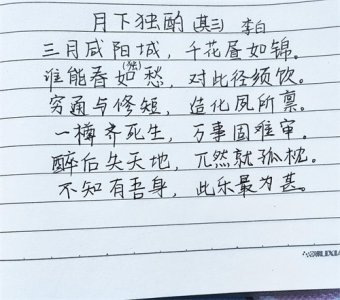 月下独酌(其三) 李白
三月咸阳城，千花昼如锦。
谁能春如(独)愁，对此径须饮。
穷通与修短，造化夙所禀。
一樽齐死生，万事固难审。
醉后失天地，兀然就孤枕。
不知有吾身，此乐最为甚。